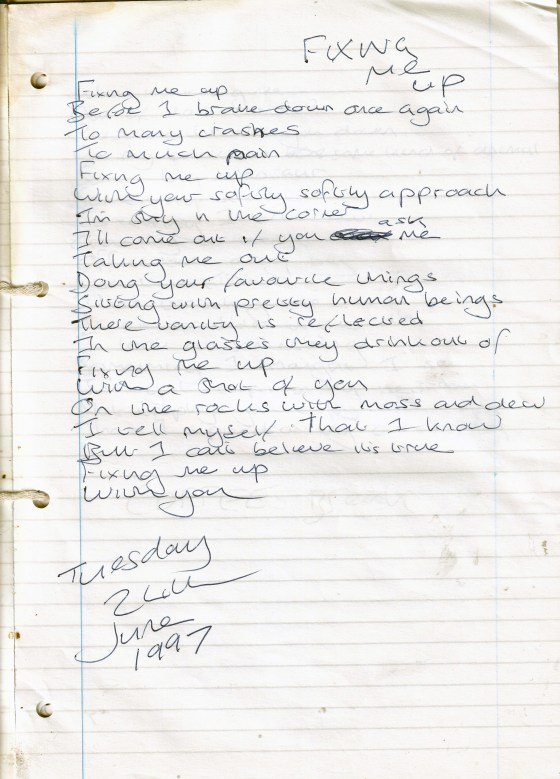 Fixing
me
up
Fixing me up
Before I brake down once again
To many crashes
To much pain
Fixing me up
With your softly softly approach
I'm shy in the corner
I'll come out if you ask me
Taking me out
Doing your favourite things
Sitting with pretty human beings
There vanity is reflected
In the glasses they drink out of
Fixing me up
With a shot of you
On the rocks with moss and dew
I tell myself that I know
But I can't believe it's true
Fixing me up
With you
Tuesday
24th
June
1997